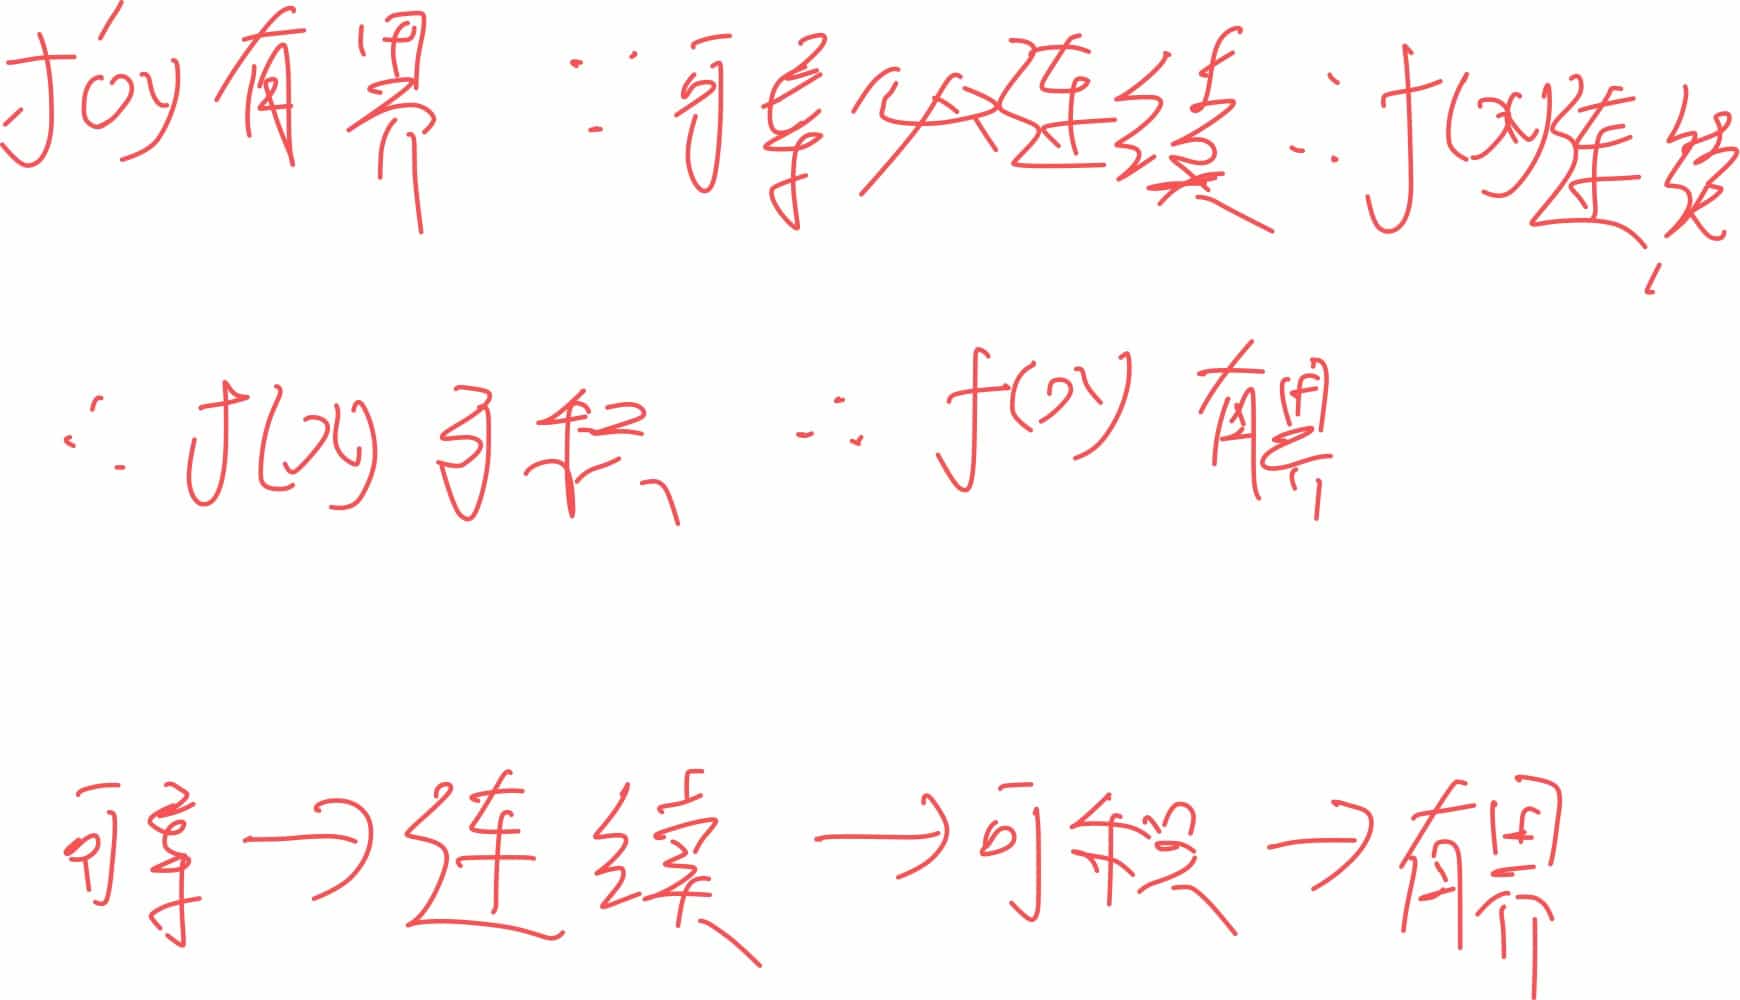 f'(x)有界 ∵可导必连续 ∴f(x)连续,
∴f(x)可积 ∴f(x)有界
可导→连续→可积→有界